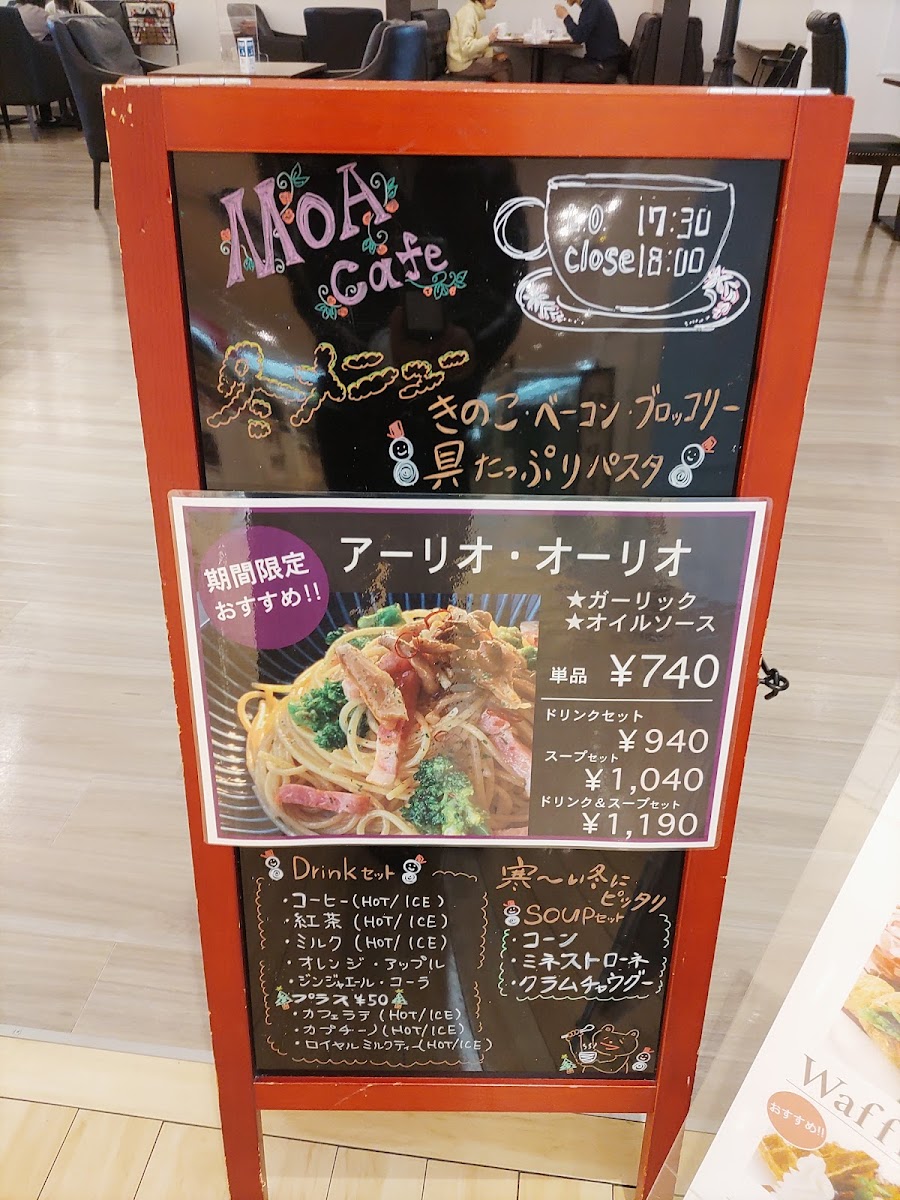 MoA
cafe
L.O 17:30
close 18:00
冬メニュー
きのこ・ベーコン・ブロッコリー
具たっぷりパスタ
期間限定
おすすめ!!
アーリオ・オーリオ
★ガーリック
★オイルソース
単品 ¥740
ドリンクセット
¥940
スープセット
¥1,040
ドリンク&スープセット
¥1,190
Drinkセット
・コーヒー(HOT/ICE)
・紅茶(HOT/ICE)
・ミルク(HOT/ICE)
・オレンジ・アップル
・ジンジャエール・コーラ
プラス¥50
・カフェラテ(HOT/ICE)
・カプチーノ(HOT/ICE)
・ロイヤルミルクティー(HOT/ICE)
寒〜い冬に
ピッタリ
SOUPセット
・コーン
・ミネストローネ
・クラムチャウダー
Waff
おすすめ!!